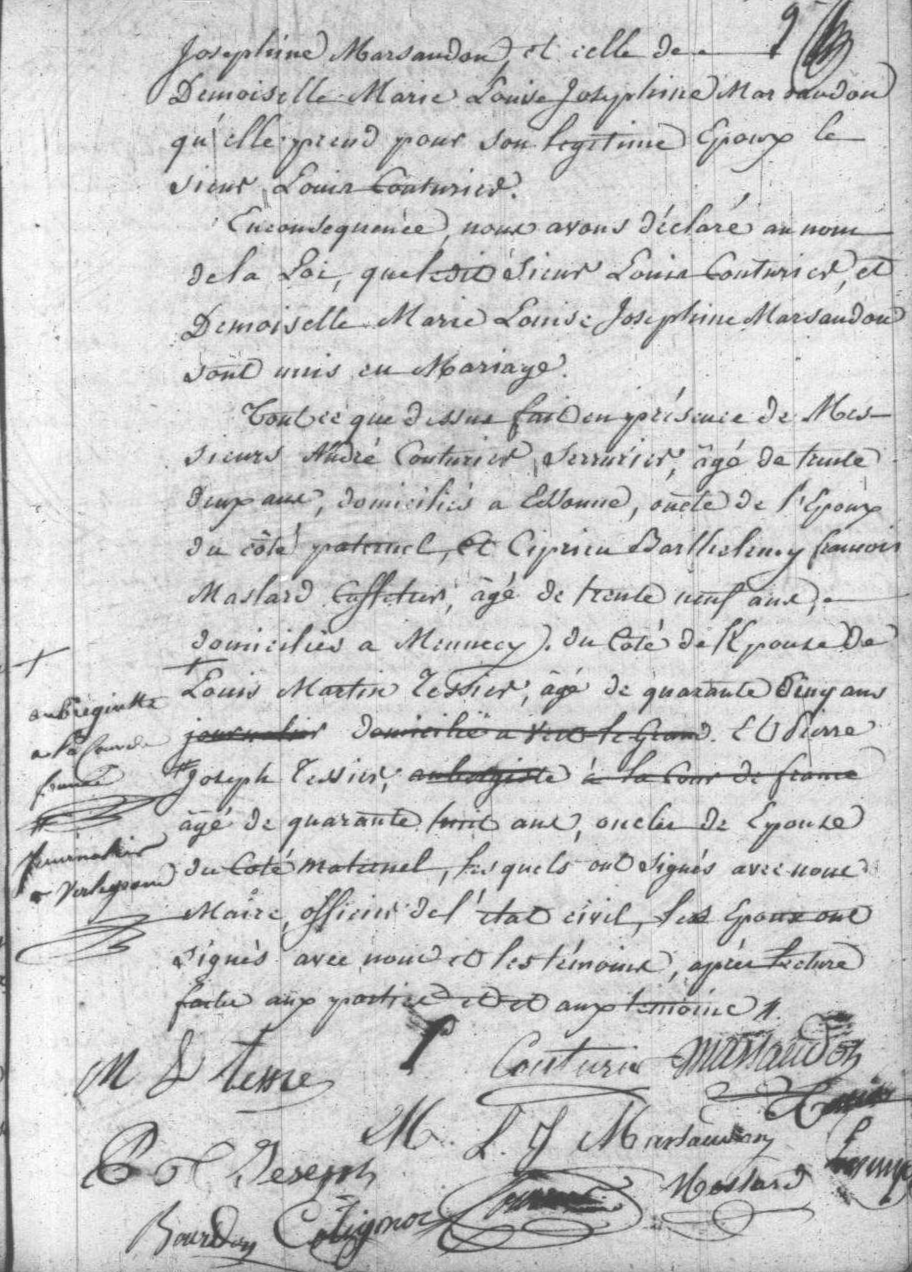 9
Josephine Marsaudon, et celle de
Demoiselle Marie Louise Josephine Marsaudon
qu'elle prend pour son legitime Epoux le
sieur Louis Couturier.
Enconsequence, nous avons déclaré au nom
de la Loi, que ledit Sieur Louis Couturier, et
Demoiselle Marie Louise Josephine Marsaudon
sont unis en Mariage.
Tout ce que dessus fait en présence de Mes
sieurs André Couturier, Serrurier, âgé de trente
deux ans, domiciliés a Essonne, oncle de l'Epoux
du côté paternel, et Ciprien Barthelemy francois
Maslard Caffetier, âgé de trente neuf ans,
domiciliés a Mennecy). du Coté de l'Epouse De
Louis Martin Tessier, âgé de quarante Cinq ans
journalier domicilié a Vert le Grand. Et Pierre
Joseph Tessier, aubergiste à la Cour de france
âgé de quarante huit ans, oncles de Epouse
du Coté maternel, lesquels ont Signés avec nous
Maire, officier de l'état civil, les Epoux ont
signés avec nous et les témoins, après lecture
faite aux parties et et aux temoins.
aubergiste
a la Cour de
france
a Verlegrand
M L tessie
Couturier
Marsaudon
M. L. J Marsaudon
P J Joseph
Maslard
Bourdon
Cotignon